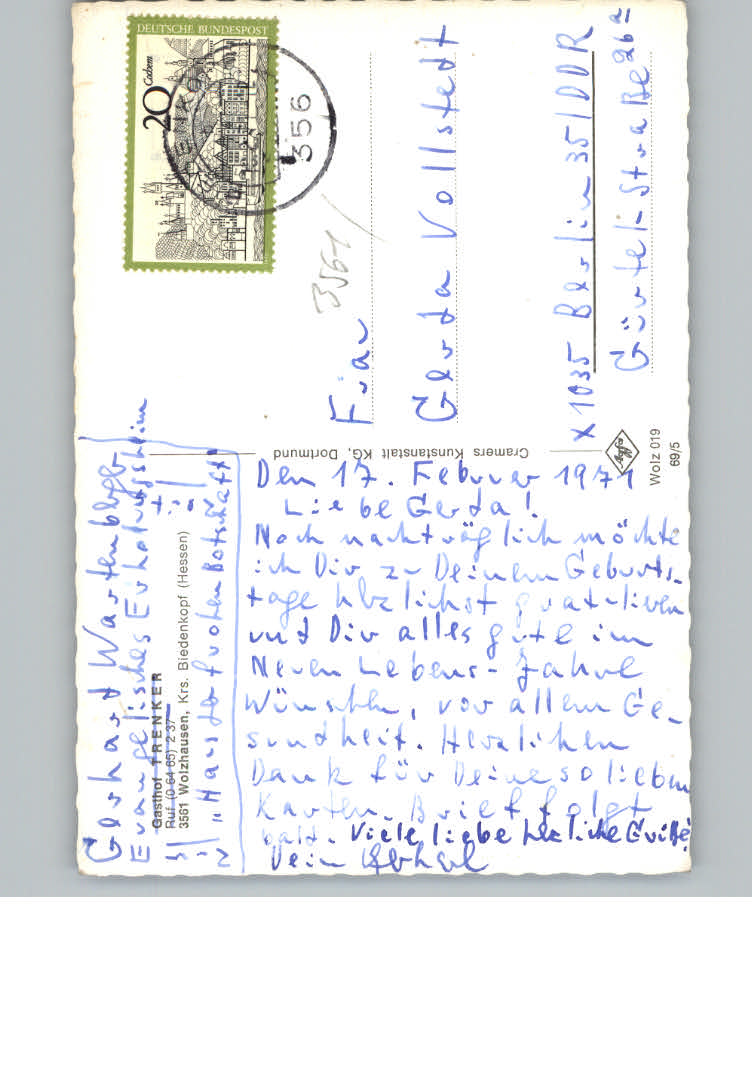 Gerhard Wartenberg
Evangelisches Erholungsheim
Gasthof TRENKER
Ruf (0 64 65) 2 37
3561 Wolzhausen, Krs. Biedenkopf (Hessen)
"Haus der frohen Botschaft"
Den 17. Februar 1971
Liebe Gerda!
Noch nachträglich möchte
ich Dir zu Deinem Geburts-
tage herzlichst gratulieren
und Dir alles gute im
Neuen Lebens-Jahre
Wünschen, vor allem Ge-
sundheit. Herzlichen
Dank für Deine so lieben
Karten. Brief folgt
bald. Viele liebe herzliche Grüße
Dein
Cramers Kunstanstalt KG, Dortmund
DEUTSCHE BUNDESPOST
20 Cochem
356
3561
Frau
Gerda Vollstedt
X1035 Berlin 35/DDR
Gürtel-Straße 26a
Agfa
Wolz 019
69/5